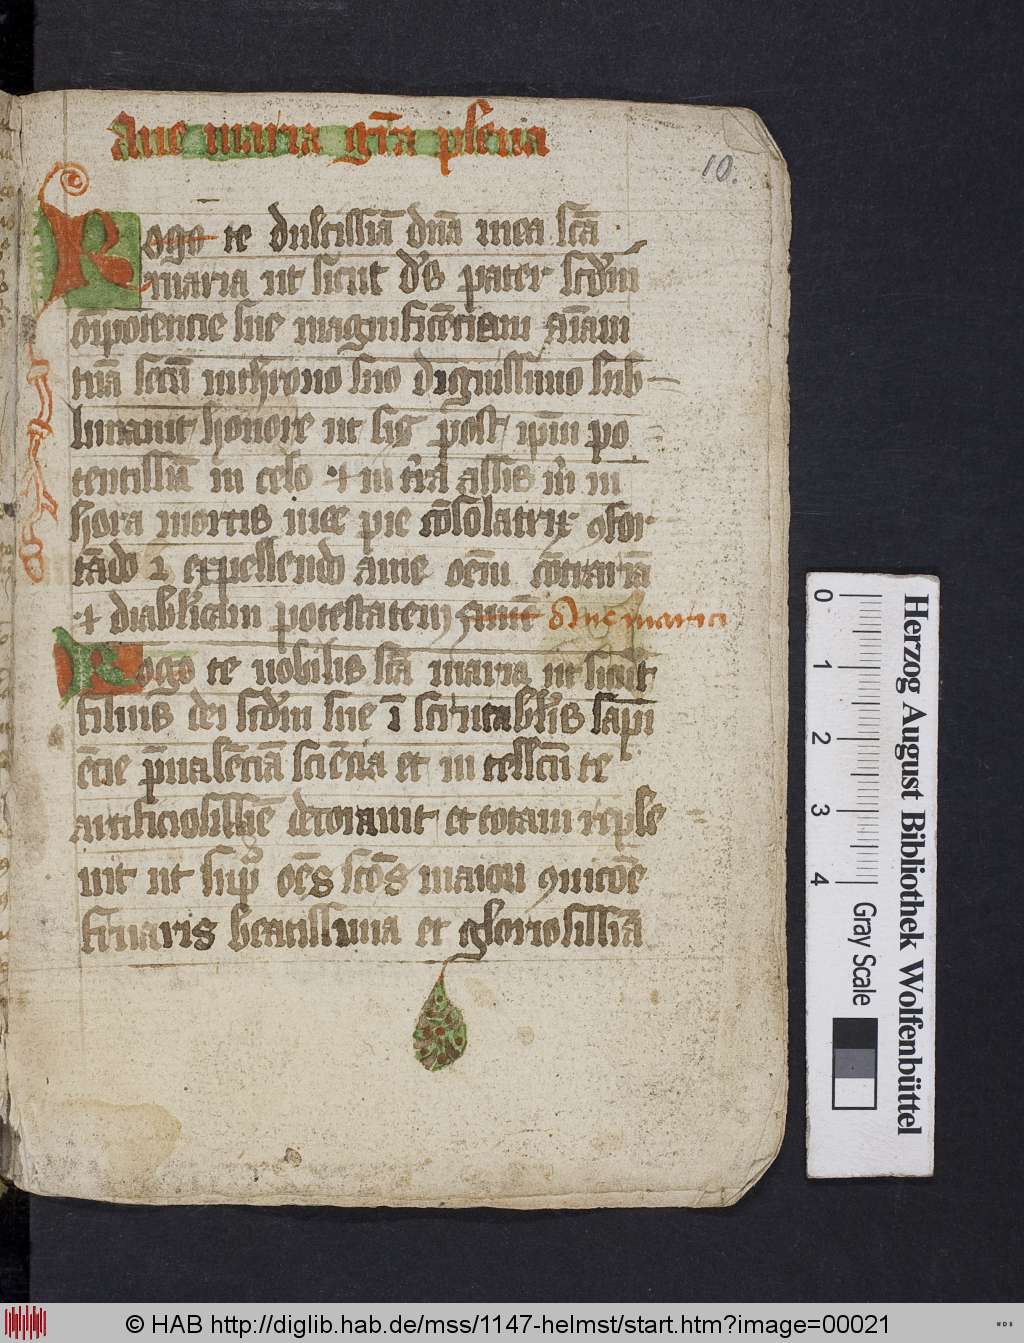 Aue maria gr̄a plena
10.
Rogo te dulcissīa dn̄a mea sc̄a
maria ut sicut d's pater scd'm
oīpotencie sue magnificēciam aīam
tuā secū inthrono suo dignissimo sub-
limauit honore ut sis post ipm po
tentissīa in celo et in t'ra assis m' in
hora mortis mee pie cōsolatrix ꝯfor-
tādo et expellendo a me oēm cōtrariā
et diabl'icam potestatem Amē Aue maria
Rogo te nobilis sc̄a maria ut sicut
filius dei scd'm sue īscrutabl'is sapi
ēcie p̄ualēciā sciēcia et in tellcū te
artificiosissīe decorauit et totam reple
uit ut sup' oēs sc̄os maiori
fruaris beatissima et gloriosissīa
0 1 2 3 4
Herzog August Bibliothek Wolfenbüttel
Gray Scale
© HAB http://diglib.hab.de/mss/1147-helmst/start.htm?image=00021